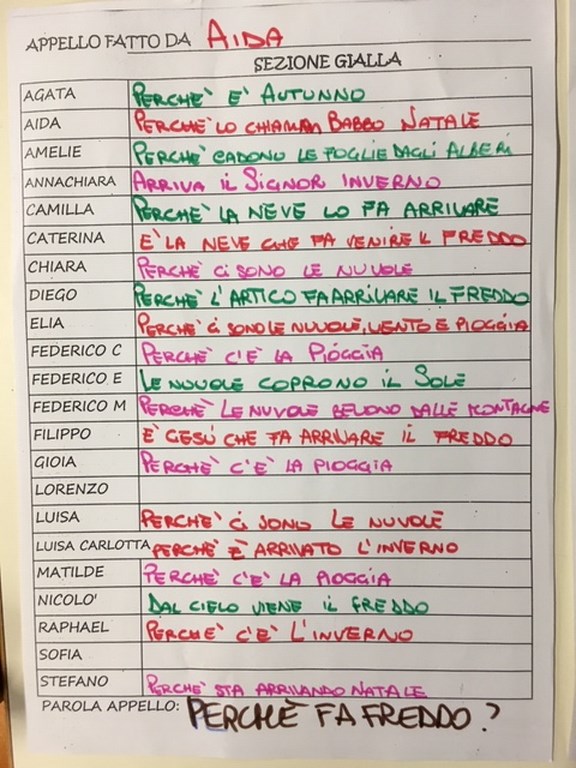 APPELLO FATTO DA AIDA
SEZIONE GIALLA
AGATA PERCHE' E' AUTUNNO
AIDA PERCHE' LO CHIAMAN BABBO NATALE
AMELIE PERCHE' CADONO LE FOGLIE DAGLI ALBERI
ANNACHIARA ARRIVA IL SIGNOR INVERNO
CAMILLA PERCHE' LA NEVE LO FA ARRIVARE
CATERINA E' LA NEVE CHE FA VENIRE IL FREDDO
CHIARA PERCHE' CI SONO LE NUVOLE
DIEGO PERCHE' L'ARTICO FA ARRIVARE IL FREDDO
ELIA PERCHE' CI SONO LE NUVOLE, VENTO E PIOGGIA
FEDERICO C PERCHE' C'E' LA PIOGGIA
FEDERICO E LE NUVOLE COPRONO IL SOLE
FEDERICO M PERCHE' LE NUVOLE BEVONO DALLE MONTAGNE
FILIPPO E' GESÙ CHE FA ARRIVARE IL FREDDO
GIOIA PERCHE' C'E' LA PIOGGIA
LORENZO
LUISA PERCHE' CI SONO LE NUVOLE
LUISA CARLOTTA PERCHE' E' ARRIVATO L'INVERNO
MATILDE PERCHE' C'E' LA PIOGGIA
NICOLO' DAL CIELO VIENE IL FREDDO
RAPHAEL PERCHE' C'E' L'INVERNO
SOFIA
STEFANO PERCHE' STA ARRIVANDO NATALE
PAROLA APPELLO: PERCHÈ FA FREDDO?